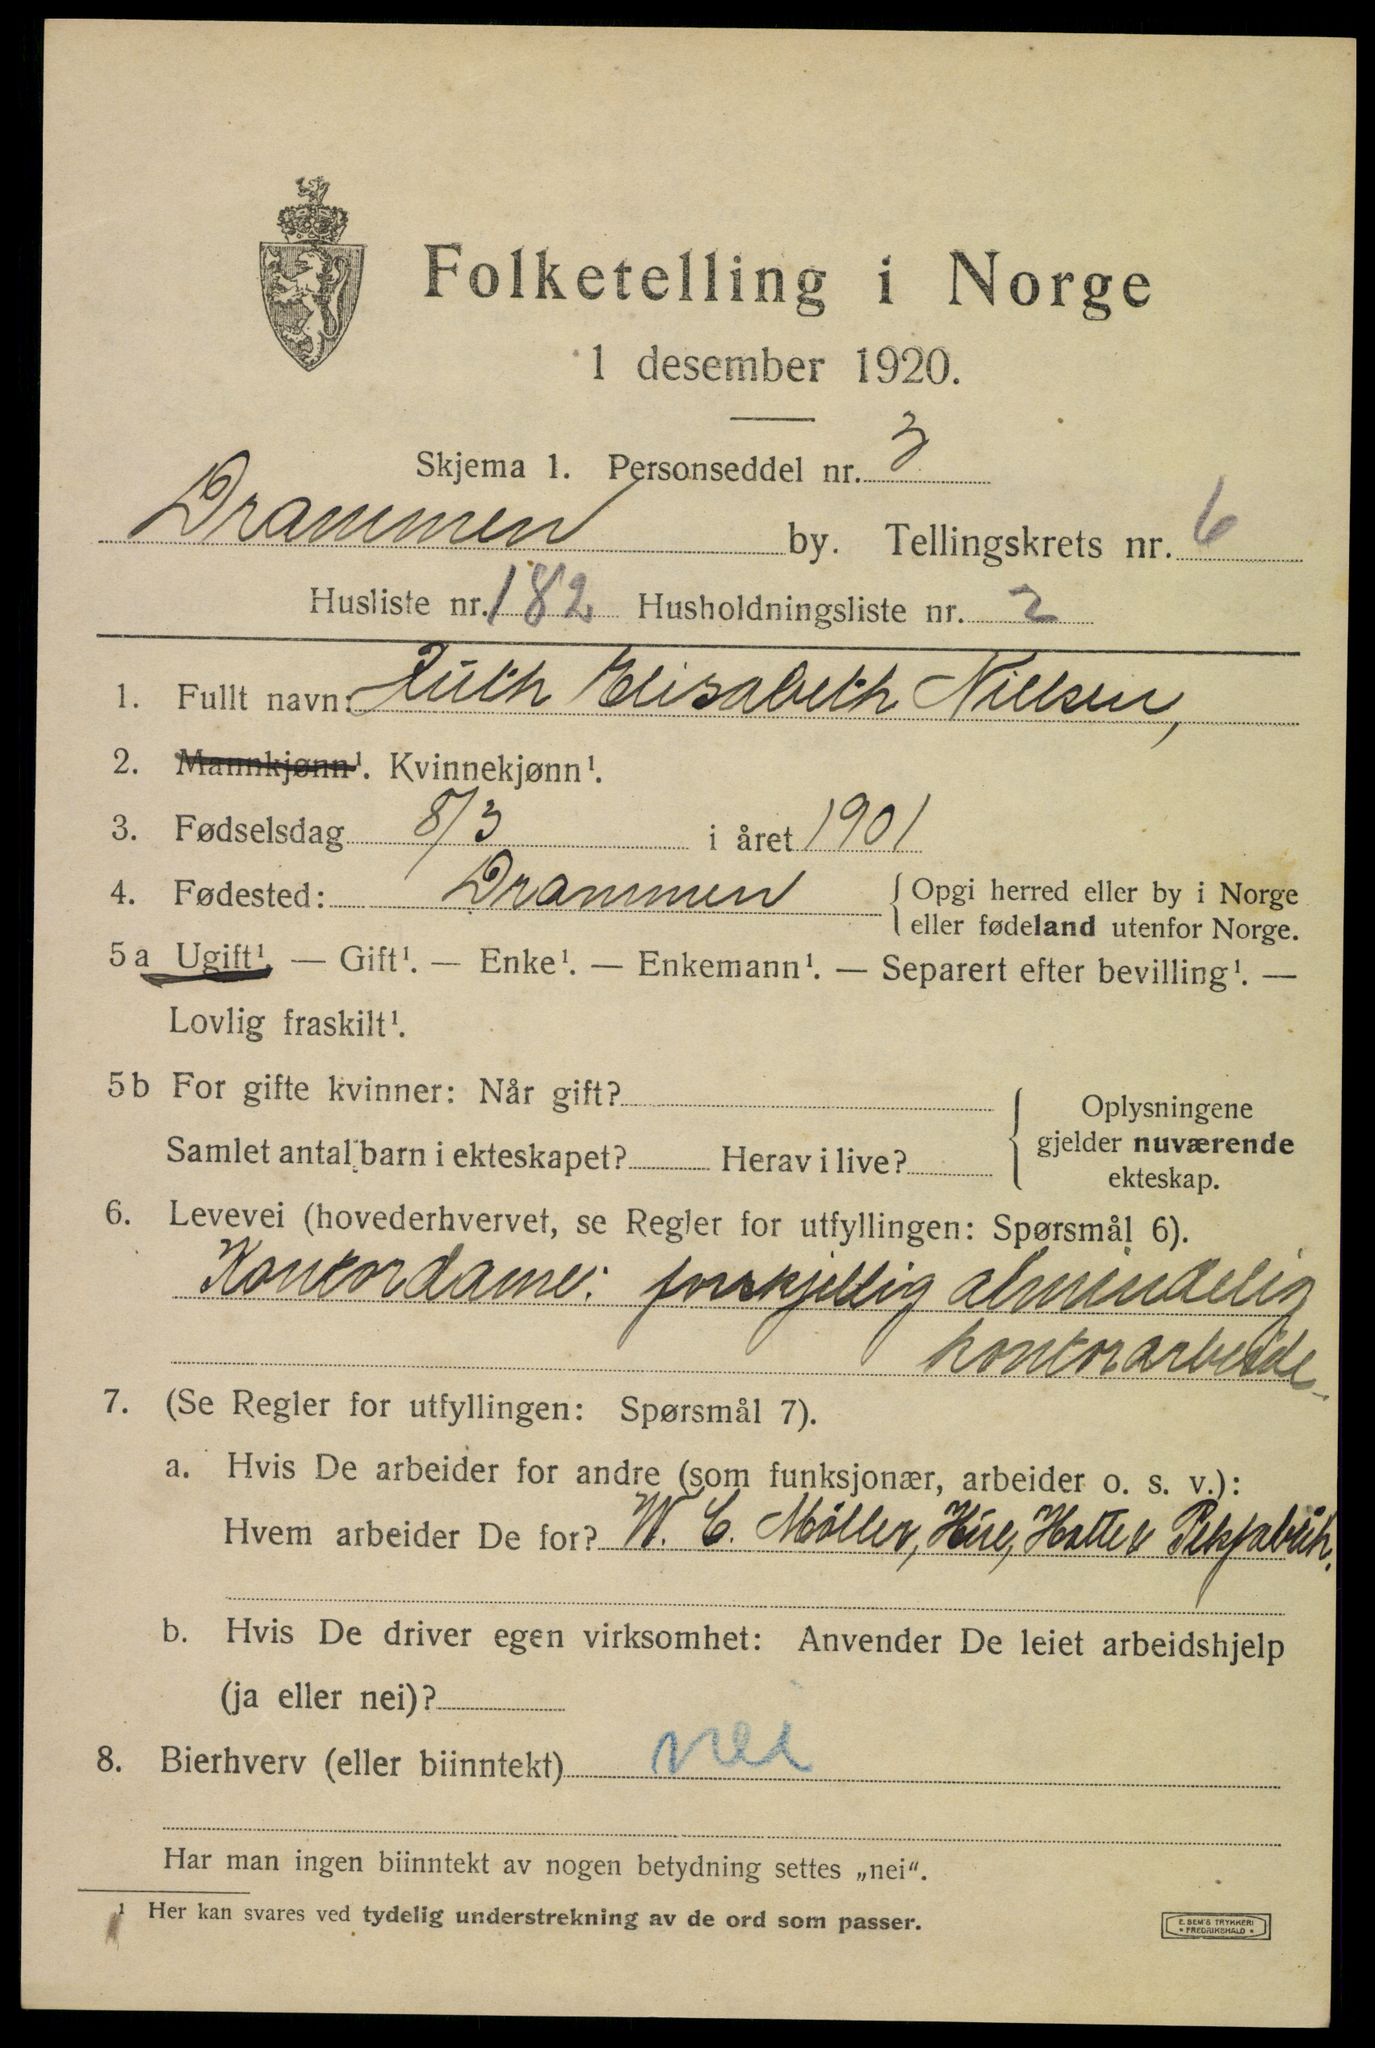 Folketelling i Norge
1 desember 1920.
Skjema 1. Personseddel nr. 3
Drammen by. Tellingskrets nr. 6
Husliste nr. 182 Husholdningsliste nr. 2
1. Fullt navn: Ruth Elisabeth Nielsen,
2. Mannkjønn¹. Kvinnekjønn¹.
3. Fødselsdag 8/3 i året 1901
4. Fødested: Drammen { Opgi herred eller by i Norge
eller fødeland utenfor Norge.
5 a Ugift¹. — Gift¹. — Enke¹. — Enkemann¹. — Separert efter bevilling¹. —
Lovlig fraskilt¹.
5 b For gifte kvinner: Når gift?
Samlet antal barn i ekteskapet? Herav i live?
{ Oplysningene
gjelder nuværende
ekteskap.
6. Levevei (hovederhvervet, se Regler for utfyllingen: Spørsmål 6).
Kontordame: forskjellig almindelig
kontorarbeide
7. (Se Regler for utfyllingen: Spørsmål 7).
a. Hvis De arbeider for andre (som funksjonær, arbeider o. s. v.):
Hvem arbeider De for? W. C. Møller, Hue, Hatte & Pelsfabrik.
b. Hvis De driver egen virksomhet: Anvender De leiet arbeidshjelp
(ja eller nei)?
8. Bierhverv (eller biinntekt) nei
Har man ingen biinntekt av nogen betydning settes „nei“.
¹ Her kan svares ved tydelig understrekning av de ord som passer.
E. SEM'S TRYKKERI
• FREDRIKSHALD •